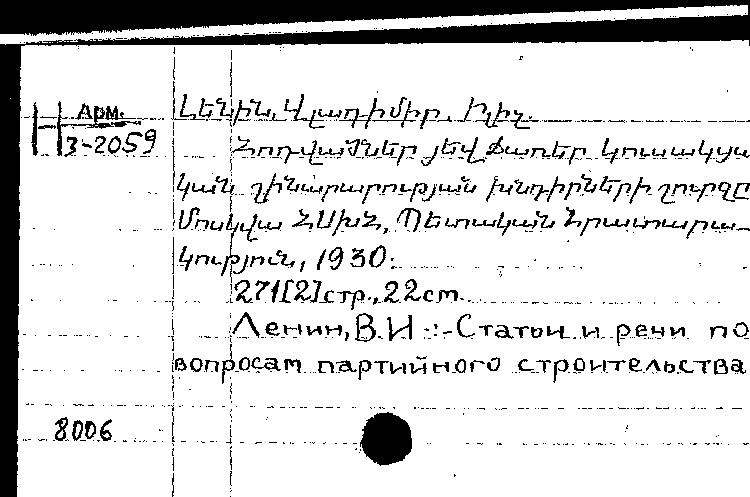 Арм.
Н 3-2059
Լենին, Վլադիմիր Իլիչ.
Հոդվածներ յեվ Ճառեր կուսակցա
կան շինարարության խնդիրների շուրջը
Մոսկվա ՀՍԽՀ, Պետական Հրատարա-
կություն, 1930:
271[2]стр., 22см.
Ленин, В.И.:-Статьи и речи по
вопросам партийного строительства
8006